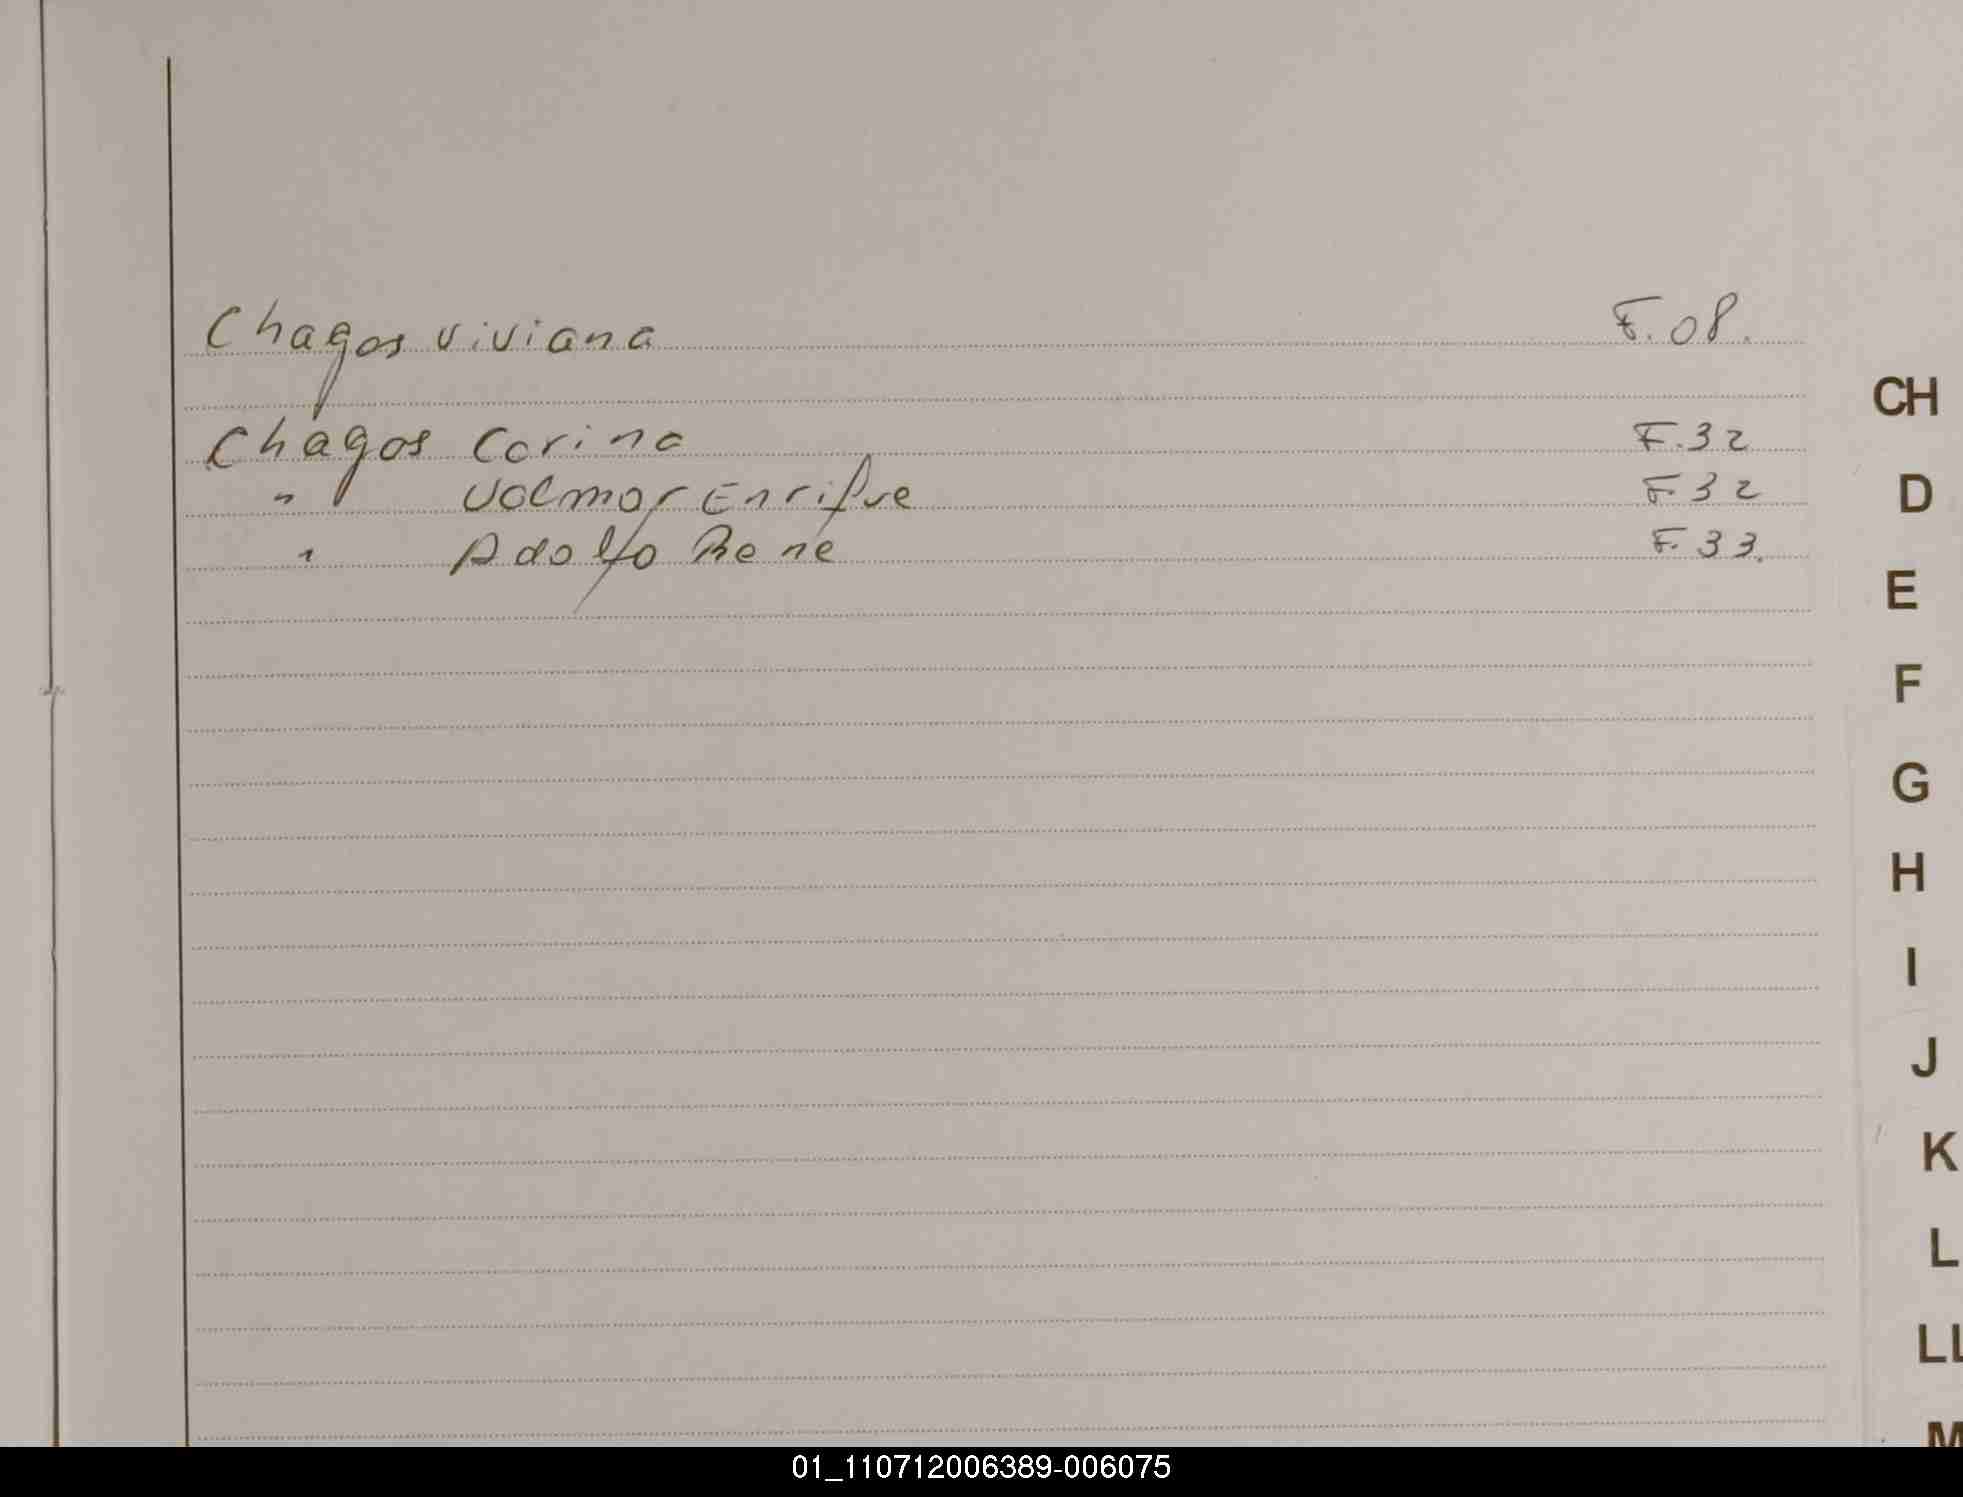 Chagos Viviana F.08.
Chagos Corina F.32
" Volmar Enrique F.32
" Adolfo Rene F.33.
CH
D
E
F
G
H
I
J
K
L
LL
M
01_110712006389-006075